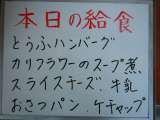 本日の給食
とうふハンバーグ
カリフラワーのスープ煮
スライスチーズ、牛乳
おさつパン、ケチャップ